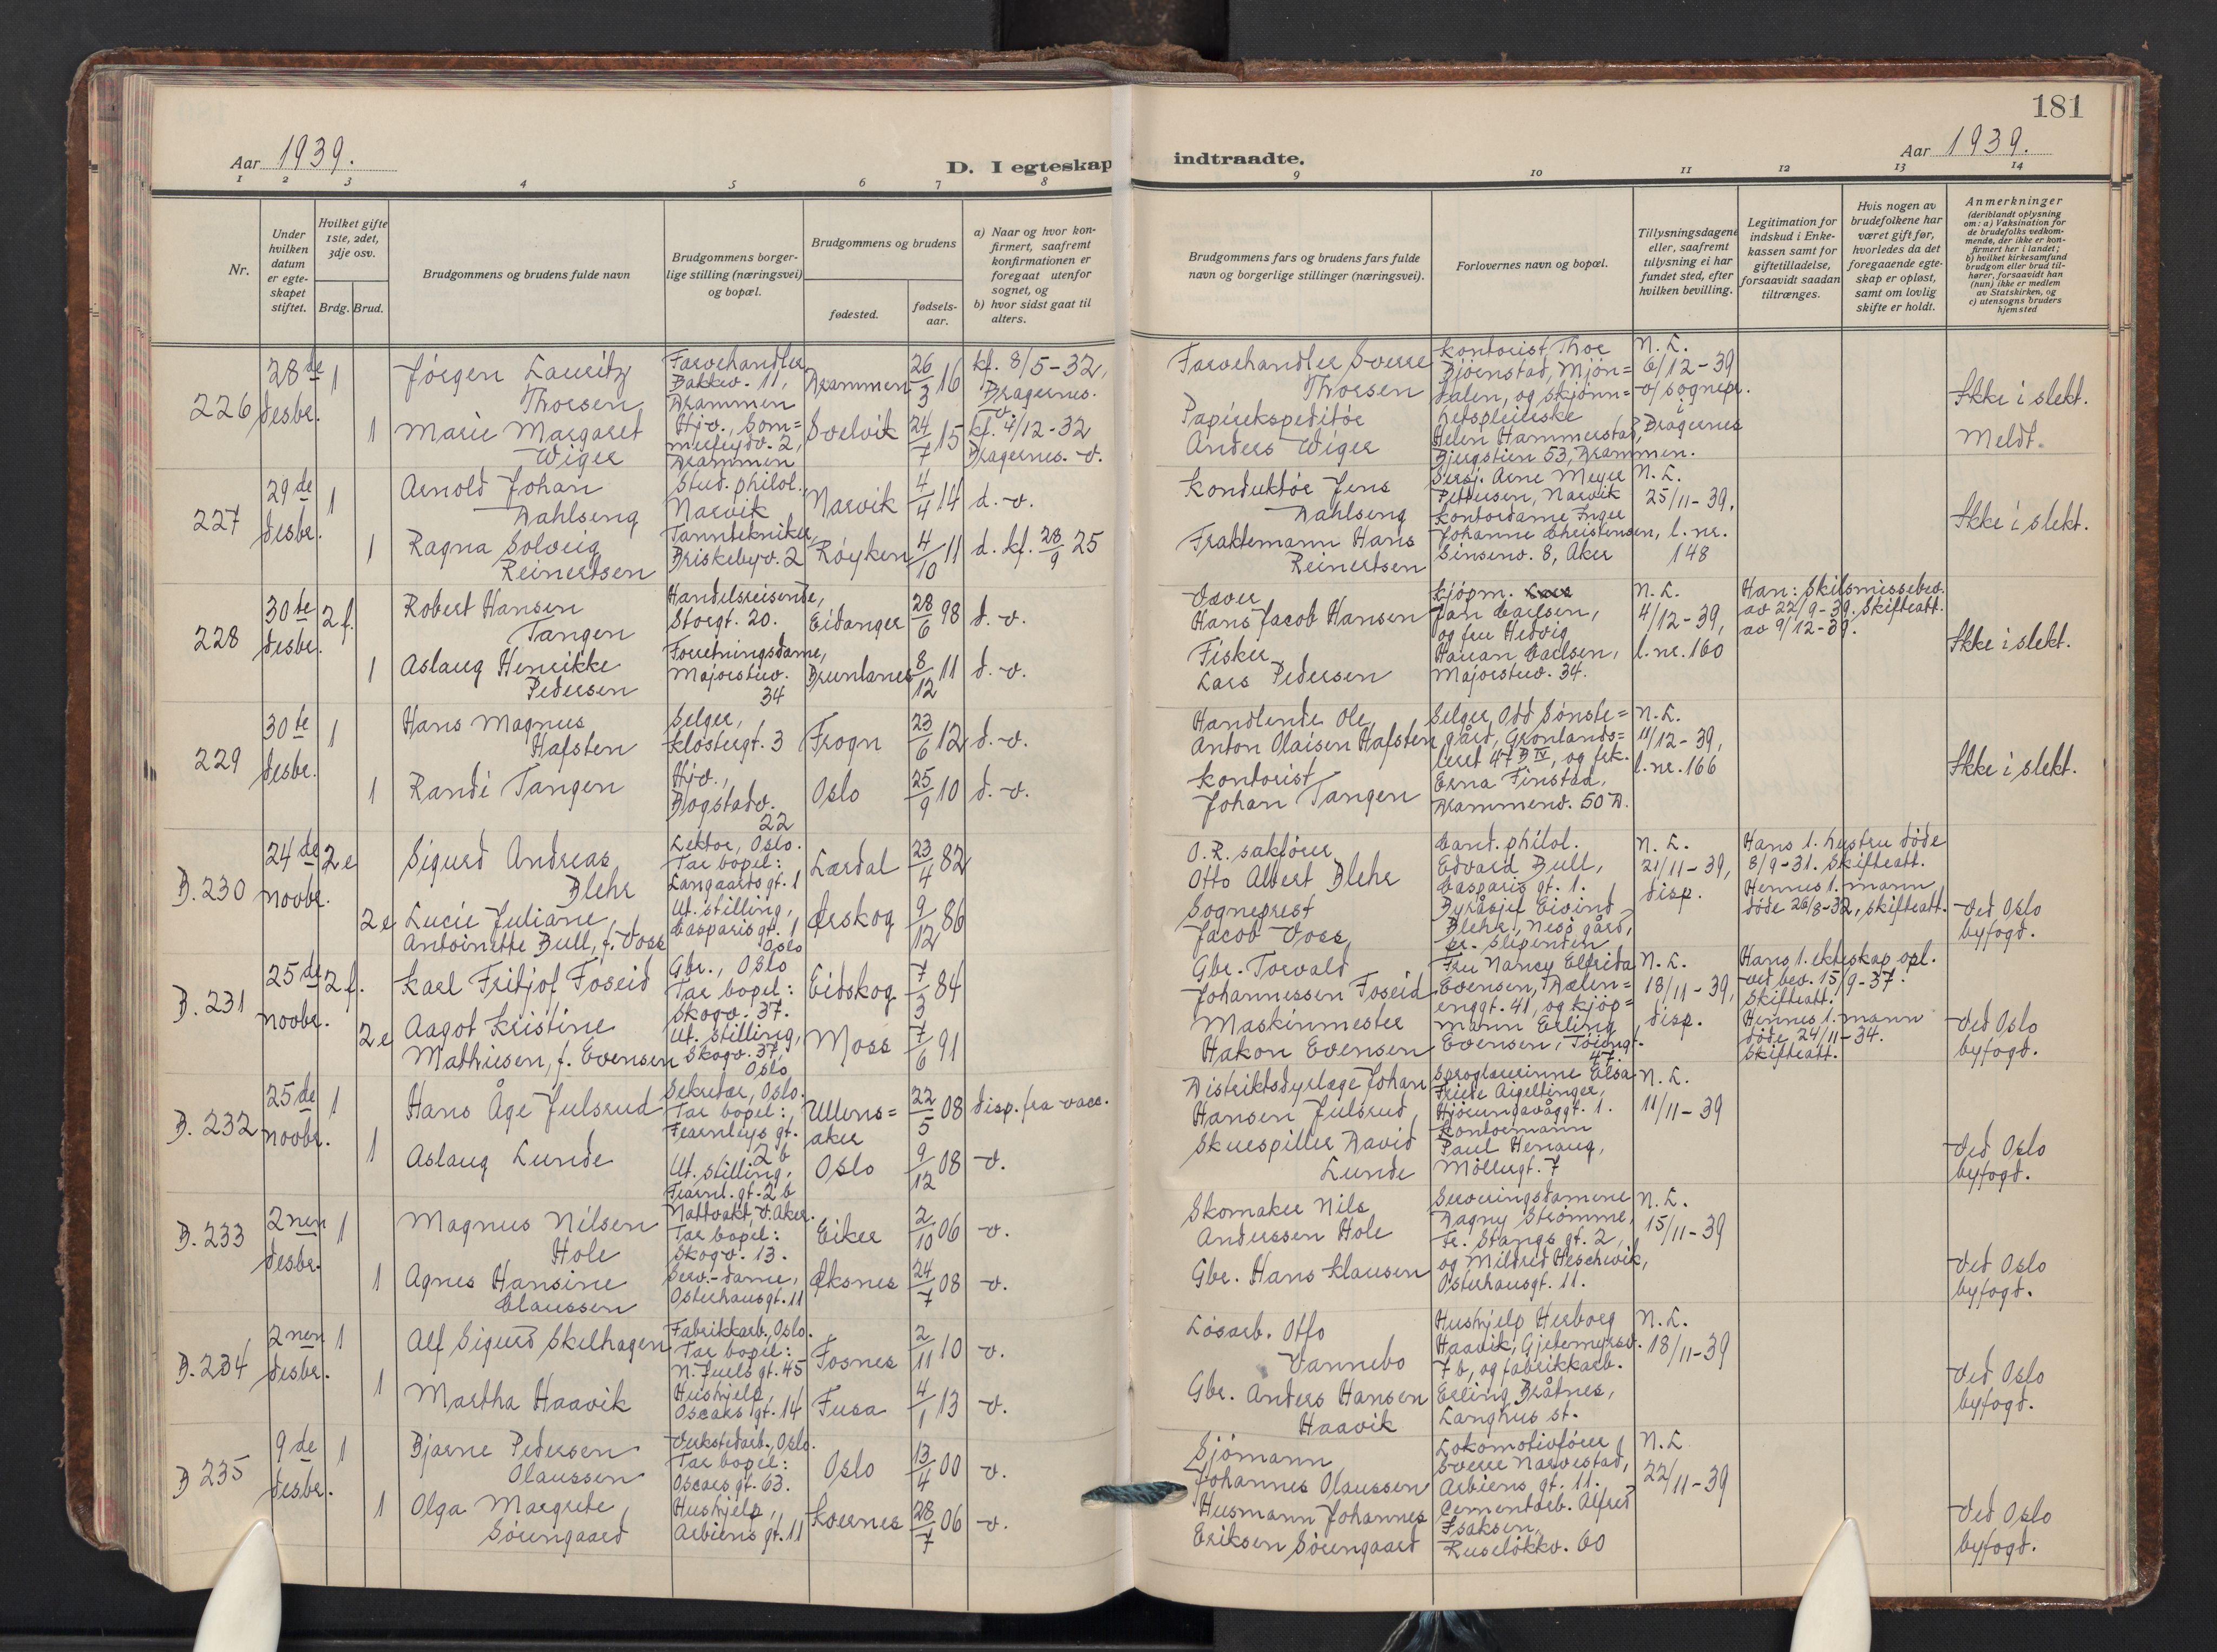 181
Aar 1939.
D. I egteskap indtraadte.
Aar 1939.
1 2 3 4 5 6 7 8 9 10 11 12 13 14
Nr.
Under hvilken datum er egteskapet stiftet.
Hvilket gifte 1ste, 2det, 3dje osv.
Brdg. Brud.
Brudgommens og brudens fulde navn
Brudgommens borgerlige stilling (næringsvei) og bopæl.
Brudgommens og brudens
fødested.
fødselsaar.
a) Naar og hvor konfirmert, saafremt konfirmationen er foregaat utenfor sognet, og
b) hvor sidst gaat til alters.
Brudgommens fars og brudens fars fulde navn og borgerlige stillinger (næringsvei).
Forlovernes navn og bopæl.
Tillysningsdagene eller, saafremt tullysning ei har fundet sted, efter hvilken bevilling.
Legitimation for indskud i Enkekassen samt for giftetilladelse, forsaavidt saadan tiltrænges.
Hvis nogen av brudefolkene har været gift før, hvorledes da det foregaaende egteskap er opløst, samt om lovlig skifte er holdt.
Anmerkninger
(deriblandt oplysning om: a) Vaksination for de brudefolks vedkommende, der ikke er konfirmert her i landet; b) hvilket kirkesamfund brudgom eller brud tilhører, forsaavidt han (hun) ikke er medlem av Statskirken, og c) utensogns bruders hjemsted
226
28de desbr.
1
Jörgen Lauritz Thorsen
Farvehandler, Bakkev. 11, Drammen
Drammen
26/3 16
kf. 8/5-32, Bragernes. v.
Farvehandler Sverre Thorsen
Kontorist Thor Bjørnstad, Mjön=dalen, og skjönn=hetspleierske Helen Hammerstad, Bjergstien 53, Drammen.
N. L. 6/12-39 v/ sognepr. i Bragernes
Ikke i slekt. Meldt.
1
Marie Margaret Wiger
Hjv., Som=merfrydv. 2, Drammen
Svelvik
24/7 15
kf. 4/12-32 Bragernes. v.
Papirekspeditör Anders Wiger
227
29de desbr.
1
Arnold Johan Dahlseng
Stud. philol., Narvik
Narvik
4/4 14
d. v.
Konduktör Jens Dahlseng
Sersj. Arne Meyer Pettersen, Narvik
Kontordame Inger Johanne Christensen, Sinsenv. 8, Aker
N. L. 25/11-39, l. nr. 148
Ikke i slekt.
1
Ragna Solveig Reinertsen
Tanntekniker, Briskebyv. 2
Röyken
4/10 11
d. kf. 28/9 25
Fraktemann Hans Reinertsen
228
30te desbr.
2 f.
Robert Hansen Tangen
Handelsreisende, Storgt. 20.
Eidanger
28/6 98
d. v.
Hans Jacob Hansen
Kjöpm. Jan Carlsen, og fru Hedvig Carlsen, Majorstuv. 34.
N. L. 4/12-39, l. nr. 160
Han: Skilsmissebev. av 22/9-39. Skifteatt. av 9/12-39.
Ikke i slekt.
1
Aslaug Henrikke Pedersen
Forretningsdame, Majorstuv. 34
Brunlanes
8/12 11
d. v.
Fisker Lars Pedersen
229
30te desbr.
1
Hans Magnus Hafsten
Selger, Klostergt. 3
Frogn
23/6 12
d. v.
Handlende Ole Anton Olaisen Hafsten
Selger, Odd Sönste=gård, Grönlands=leret 47 B IV, og frk. Erna Finstad, Drammensv. 50 D.
N. L. 11/12-39, l. nr. 166
Ikke i slekt.
1
Randi Tangen
Hjv., Bogstadv. 22
Oslo
25/9 10
d. v.
Kontorist Johan Tangen
B. 230
24de novbr.
2 e
Sigurd Andreas Blehr
Lektor, Oslo. Tar bopel: Langaards gt. 1
Lærdal
23/4 82
O. R. sakförer Otto Albert Blehr
Cand. philol. Edvard Bull, Casparis gt. 1.
Byråsjef Eivind Blehr, Ness gård, pr. Slependen
N. L. 21/11-39, disp.
Hans 1. hustru döde 8/9-31. Skifteatt.
Hennes 1. mann döde 26/8-32, skifteatt.
Ved Oslo byfogd.
2 e
Lucie Juliane Antoinette Bull, f. Voss
Ut. stilling, Casparis gt. 1 Oslo
Ørskog
9/12 86
Sogneprest Jacob Voss
B. 231
25de novbr.
2 f.
Karl Fritjof Foseid
Gbr., Oslo Tar bopel: Skogv. 37.
Eidskog
7/3 84
Gbr. Torvald Johannessen Foseid
Fru Nancy Elfrida Evensen, Dælen=enggt. 41, og kjöp=mann Erling Evensen, Töiengt. 47.
N. L. 18/11-39, disp.
Hans 1. ekteskap opl. ved bev. 15/9-37. Skifteatt.
Hennes 1. mann döde 24/11-34. Skifteatt.
Ved Oslo byfogd.
2 e
Aagot Kristine Mathiesen, f. Evensen
Ut. stilling, Skogv. 37, Oslo
Moss
7/6 91
Maskinmester Hakon Evensen
B. 232
25de novbr.
1
Hans Åge Julsrud
Sekretær, Oslo. Tar bopel: Fearnleys gt. 2 b
Ullens=aker
22/5 08
disp. fra vacc.
Distriktsdyrlæge Johan Hansen Julsrud,
Sproglærerinne Elsa Friede Aigeltinger, Hjörungavåggt. 1.
Kontormann Paul Henaug, Möllergt. 7
N. L. 11/11-39
Ved Oslo byfogd.
1
Aslaug Lunde
Ut. stilling, Fearnl. gt. 2 b
Oslo
9/12 08
v.
Skuespiller David Lunde
B. 233
2nen desbr.
1
Magnus Nilsen Hole
Nattvakt, V. Aker. Tar bopel: Skogv. 13.
Eiker
2/10 06
v.
Skomaker Nils Anderssen Hole
Serveringsdamene Dagny Strömme, Fr. Stangs gt. 2, og Mildred Heschevik, Osterhausgt. 11.
N. L. 15/11-39
Ved Oslo byfogd.
1
Agnes Hansine Claussen
Serv.-dame, Osterhausgt. 11
Øksnes
24/7 08
v.
Gbr. Hans Klausen
B. 234
2nen desbr.
1
Alf Sigurd Skelhagen
Fabrikkarb., Oslo. Tar bopel: N. Juels gt. 45
Fosnes
2/11 10
v.
Lösarb. Otto Vannebo
Hushjelp Herborg Haavik, Gjetemyrsv. 7 b, og fabrikkarb. Erling Bråtnes, Langhus st.
N. L. 18/11-39
Ved Oslo byfogd.
1
Martha Haavik
Hushjelp, Oscars gt. 14
Fusa
4/1 13
v.
Gbr. Anders Hansen Haavik
B 235
9de desbr.
1
Bjarne Pedersen Olaussen
Verkstedarb., Oslo. Tar bopel: Oscars gt. 63.
Oslo
13/4 00
v.
Sjömann Johannes Olaussen
Lokomotivförer Sverre Narvestad, Arbiens gt. 11.
Cementarb. Alfred Isaksen, Ruselökkv. 60
N. L 22/11-39
Ved Oslo byfogd.
1
Olga Margrete Sörengaard
Hushjelp, Arbiens gt. 11
Kvernes
28/7 06
v.
Husmann Johannes Eriksen Sörengaard